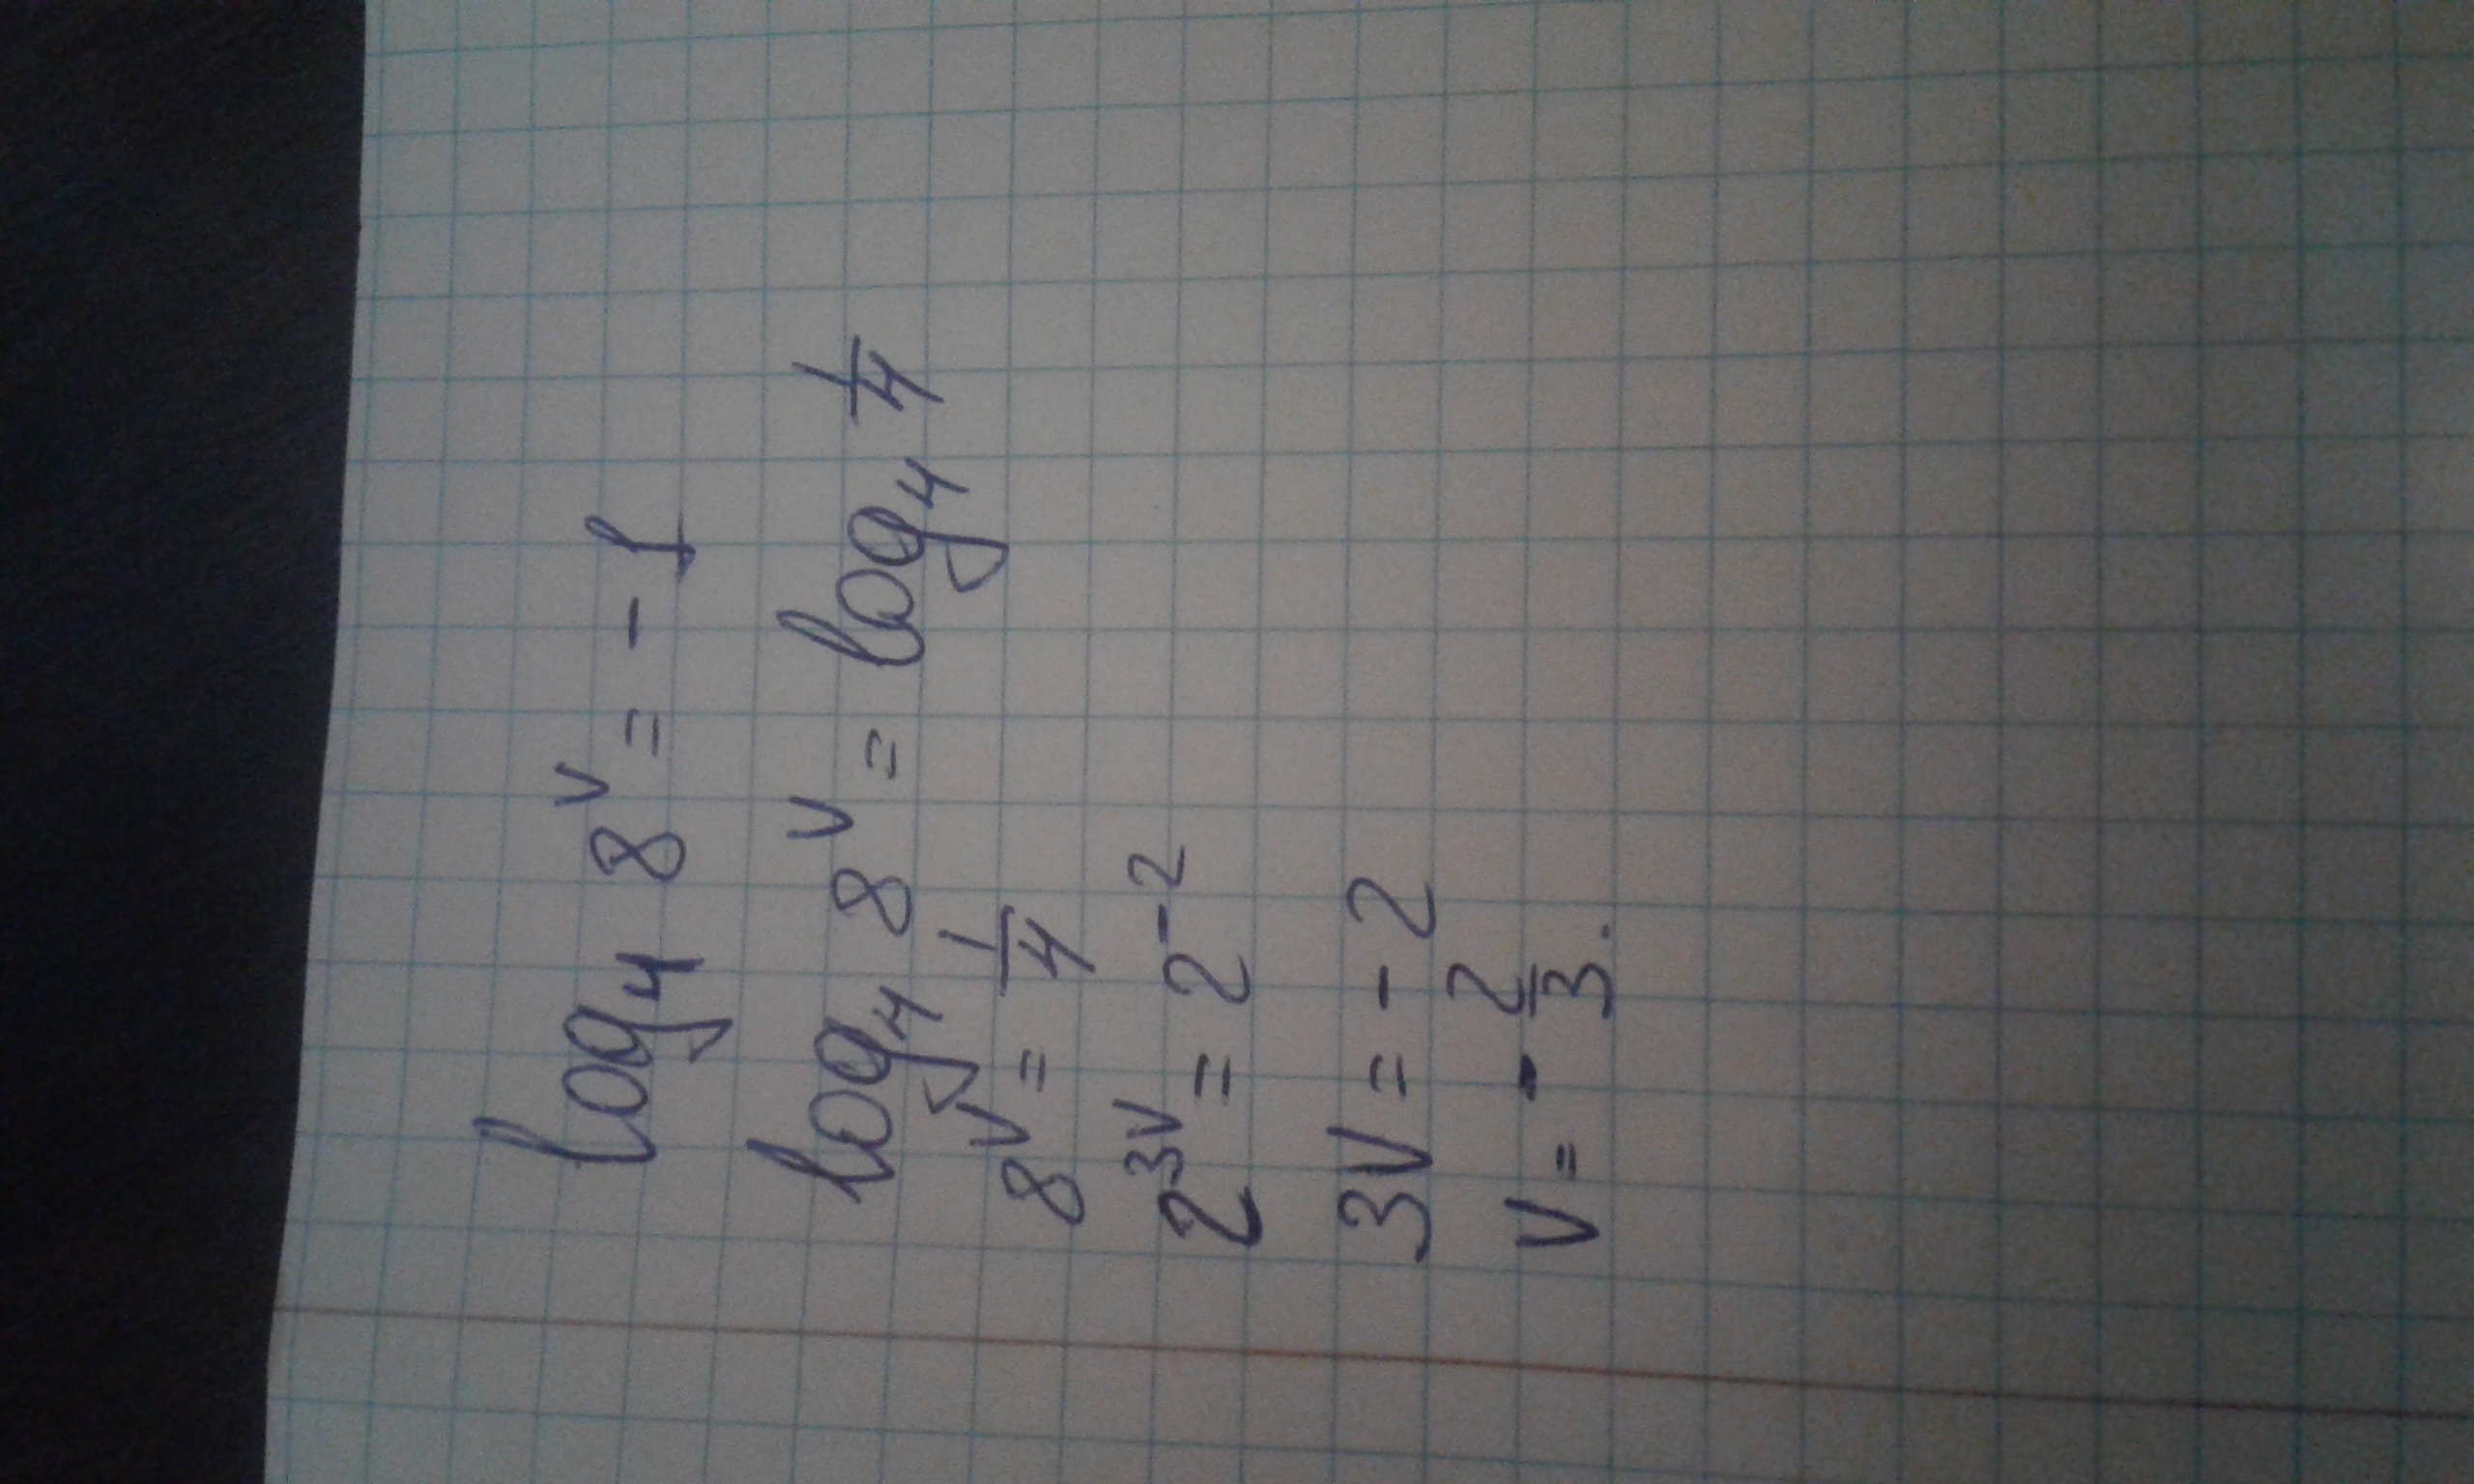 log₄ 8ᵛ = - 1
log₄ 8ᵛ = log₄ 1/4
8ᵛ = 1/4
2³ᵛ = 2⁻²
3v = - 2
v = - 2/3.